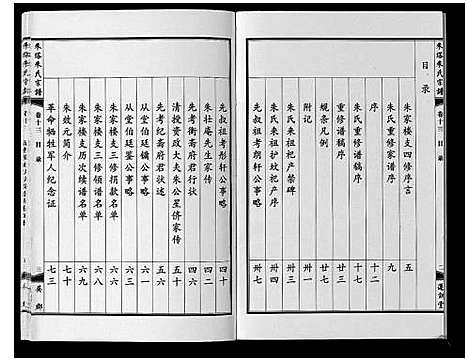 朱塔朱氏宗譜
卷十三 目录
目录
朱家楼支四修序言 五
朱氏重修家谱序 九
序 十二
朱氏重修谱稿序 十七
重修谱稿序 廿三
规条凡例 廿七
附记 卅一
朱氏来祖祀产禁碑 卅三
朱氏来祖祀护蚊祀产序
先叔祖考朗轩公事略 卅七
先叔祖考彤轩公事略 四十
朱壮庵先生家传 四二
先考衡斋府君行状 四六
清授资政大夫朱公星侪家传 五十
先考纪斋府君状述 五六
从堂伯廷镛公事略 六一
从堂伯廷鉴公事略 六五
朱家楼支三修捐款名单 六六
朱家楼支三修领谱名单 六八
朱家楼支历次续谱名单 六九
朱效元简介 七十
革命牺牲军人纪念证 七三
卷十三 目录